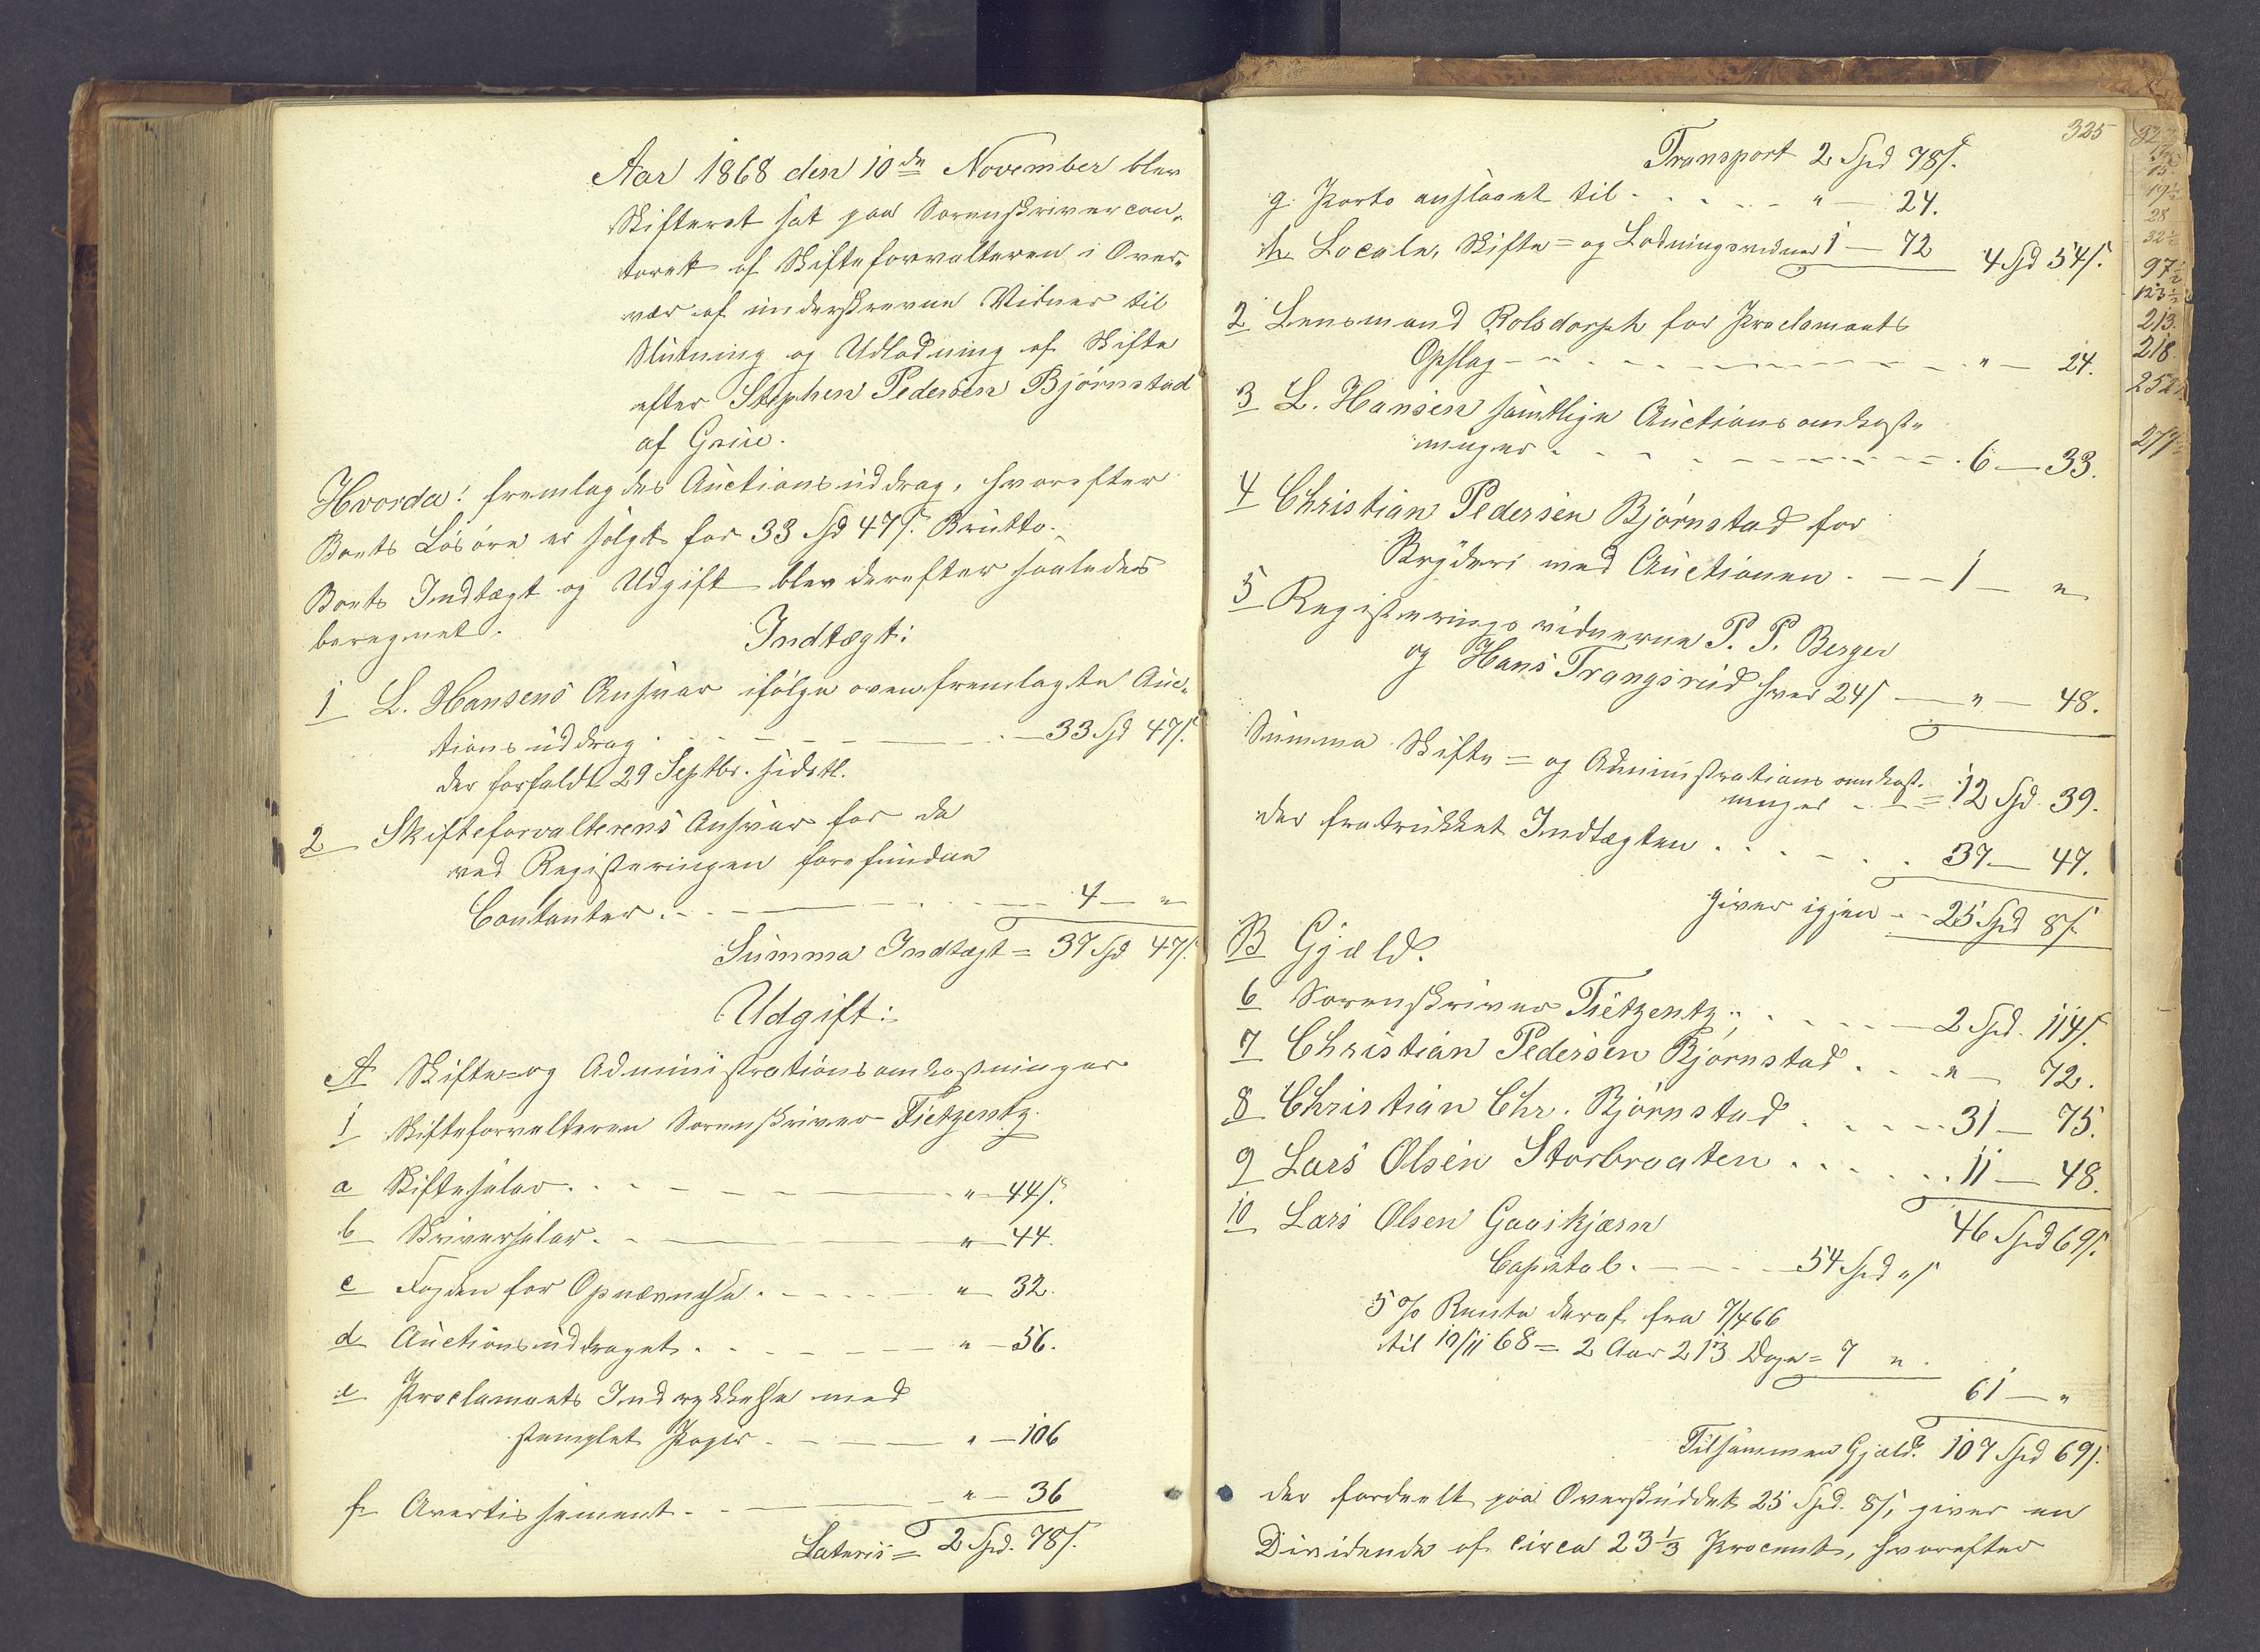 Aar 1868 den 10de November blev
Skifteret sat paa Sorenskrivercon„
toret af Skifteforvalteren i Over„
vær af underskrevne Vidner til
Slutning og Udlodning af Skifte
efter Stephen Pedersen Bjørnstad
af Grue.
Hvorda: fremlagdes Auctionsuddrag, hvorefter
Boets Løsøre er solgt for 33 Spd 47 s. Brutto.
Boets Indtægt og Udgift blev derefter saaledes
beregnet.
Indtægt:
1 L. Hansens Ansvar ifølge ovenfremlagte Auc„
tionsuddrag - - - 33 Spd 47 s.
der forfaldt 29 Septbr. sidstl.
2 Skifteforvalterens Ansvar for de
ved Registeringen forefundne
Contanter - - - 4 — "
Summa Indtægt = 37 Spd 47 s.
Udgift:
A Skifte= og Administrationsomkostninger
1 Skifteforvalteren Sorenskriver Tietzentz.
a Skiftesalær - - - " — 44 s.
b Skriversalær - - - " — 44.
c Fogden for Opnævnelse - - - " — 32.
d Auctionsuddraget - - - " — 56.
e Proclamaets Indrykkelse med
stemplet Papir - - - " — 106
f Avertissement - - - " — 36
Lateris = 2 Spd. 78 s.
325
Transport 2 Spd 78 s.
g. Porto anslaaet til - - - " — 24.
h Locale, Skifte= og Lodningsvidner 1 — 72 4 Spd 54 s.
2 Lensmand Rolsdorph for Proclamaets
Opslag - - - " — 24.
3 L. Hansen samtlige Auctionsomkost„
ninger - - - 6 — 33.
4 Christian Pedersen Bjørnstad for
Bryderi med Auctionen - - - 1 — "
5 Registeringsvidnerne P. P. Berger
og Hans Trangsrud hver 24 s — " — 48.
Summa Skifte= og Administrationsomkost„
ninger - - = 12 Spd. 39.
der fratrukket Indtægten - - - 37 — 47.
giver igjen - - 25 Spd 8 s.
B Gjæld.
6 Sorenskriver Tietzentz - - - 2 Spd. 114 s.
7 Christian Pedersen Bjørnstad - - - " — 72.
8 Christian Chr. Bjørnstad - - - 31 — 75.
9 Lars Olsen Storbraaten - - - 11 — 48.
46 Spd 69 s.
10 Lars Olsen Gaaskjærn
Capital - - - 54 Spd " s
5 % Rente deraf fra 7/4 66
til 10/11 68 = 2 Aar 213 Dage = 7 " .
61 — "
Tilsammen Gjæld 107 Spd 69 s.
der fordeelt paa Overskuddet 25 Spd. 8 s, giver en
Dividende af circa 23 1/3 Procent, hvorefter
19 1/2
28
32 1/2
97 1/2
123 1/2
213.
218.